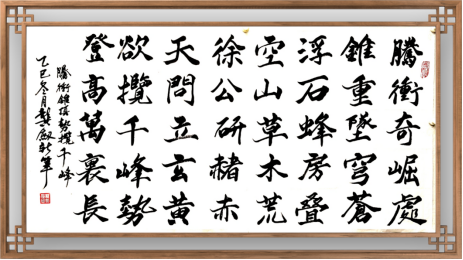 騰衝奇崛處
錐重墜穹蒼
浮石蜂房疊
空山草木荒
徐公研赭赤
天問立玄黃
欲攬千峰勢
登高萬裏長
騰衝錐墜勢攬千峰
乙巳冬月龔